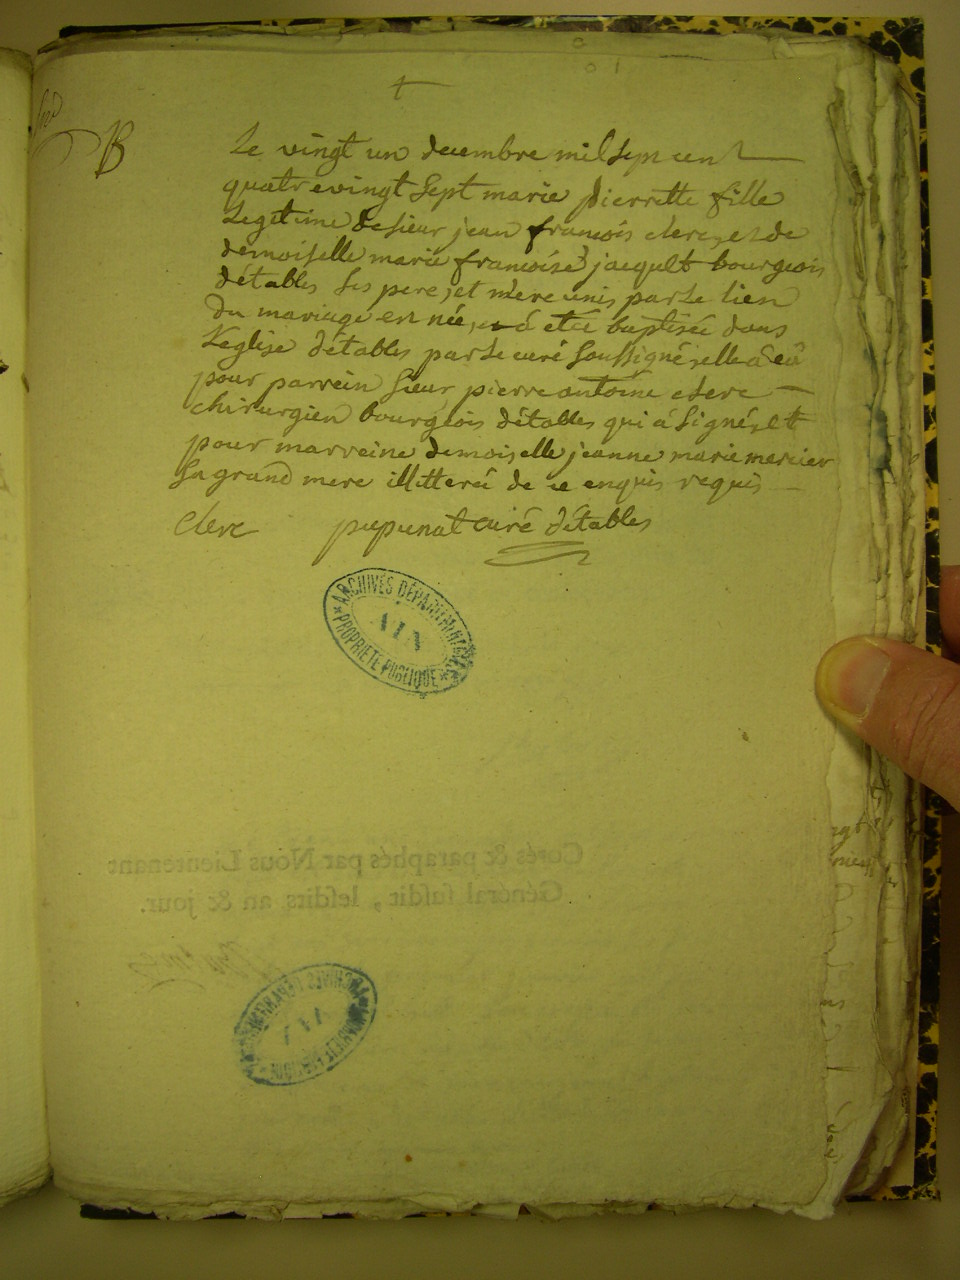 B
Le vingt un decembre mil sept cent
quatrevingt sept marie pierrette fille
Legitime de sieur jean francois clerc, et de
demoiselle marie francoise jacquet bourgeois
détables ses pere, et mere unis par le lien
du mariage en née, et á eté baptisée dans
Leglise détables par le curé soussigné, elle á eû
pour parrein sieur pierre antoine clerc
chirurgien bourgeois détables qui á signé, et
pour marreine demoiselle jeanne marie mercier
sa grand mere illitteré de ce enquis requis
clerc pupunat curé détables
ARCHIVES DÉPARTEMENTALES
AIN
PROPRIÉTÉ PUBLIQUE
Cotés & paraphés par Nous Lieutenant
Général susdit, lesdits an & jour.
ARCHIVES DÉPARTEMENTALES
AIN
PROPRIÉTÉ PUBLIQUE